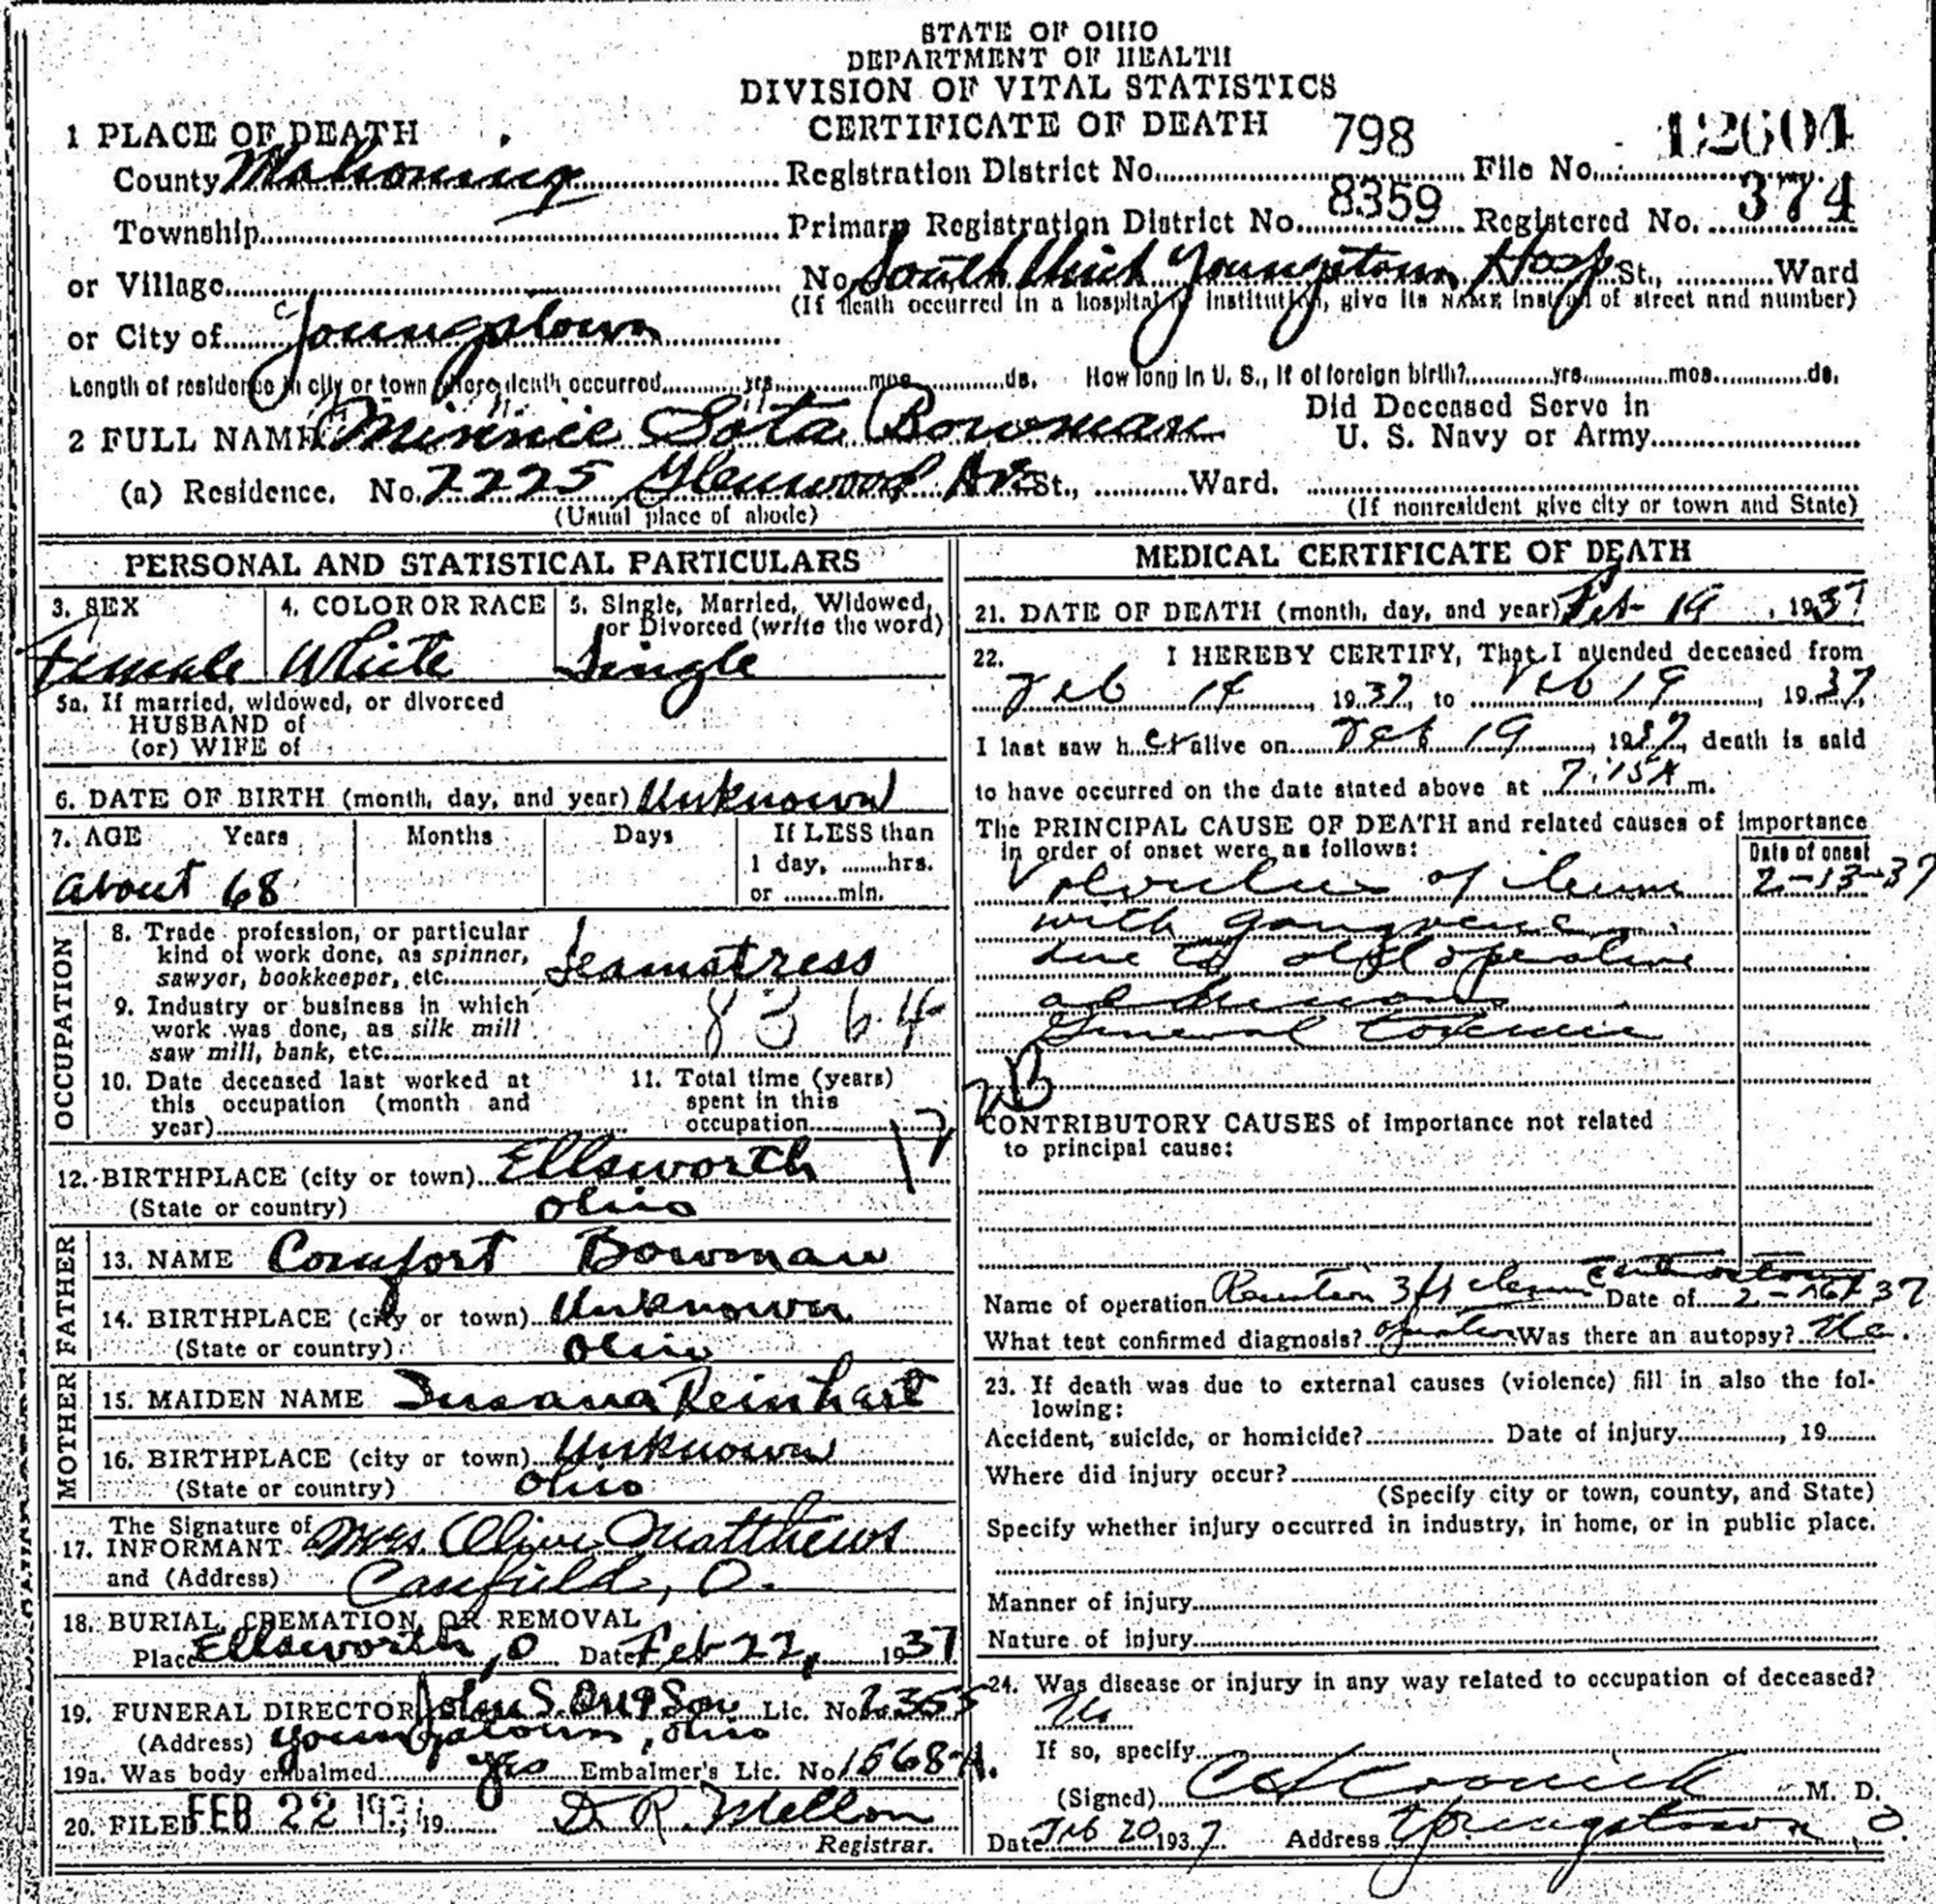 STATE OF OHIO
DEPARTMENT OF HEALTH
DIVISION OF VITAL STATISTICS
CERTIFICATE OF DEATH
1 PLACE OF DEATH
County Mahoning Registration District No. 798 File No. 12604
Township Primary Registration District No. 8359 Registered No. 374
or Village No. South Unit Youngstown Hosp St., Ward
(If death occurred in a hospital or institution, give its NAME instead of street and number)
or City of Youngstown
Length of residence in city or town where death occurred yrs. mos. ds. How long in U. S., if of foreign birth? yrs. mos. ds.
2 FULL NAME Minnie Sota Bowman Did Deceased Serve in U. S. Navy or Army
(a) Residence. No. 2225 Glenwood Ave St., Ward.
(Usual place of abode) (If nonresident give city or town and State)
PERSONAL AND STATISTICAL PARTICULARS
3. SEX 4. COLOR OR RACE 5. Single, Married, Widowed, or Divorced (write the word)
Female White Single
5a. If married, widowed, or divorced
HUSBAND of
(or) WIFE of
6. DATE OF BIRTH (month, day, and year) Unknown
7. AGE Years Months Days If LESS than
1 day, hrs.
or min.
About 68
OCCUPATION
8. Trade profession, or particular
kind of work done, as spinner,
sawyer, bookkeeper, etc. Seamstress
9. Industry or business in which
work was done, as silk mill
saw mill, bank, etc. 8364
10. Date deceased last worked at
this occupation (month and
year)
11. Total time (years)
spent in this
occupation
12. BIRTHPLACE (city or town) Ellsworth
(State or country) Ohio
FATHER
13. NAME Comfort Bowman
14. BIRTHPLACE (city or town) Unknown
(State or country) Ohio
MOTHER
15. MAIDEN NAME Susana Reinhart
16. BIRTHPLACE (city or town) Unknown
(State or country) Ohio
17. The Signature of
INFORMANT Mrs. Olive Matthews
and (Address) Canfield, O.
18. BURIAL, CREMATION, OR REMOVAL
Place Ellsworth, O Date Feb 22, 1937
19. FUNERAL DIRECTOR John S. Lic. No.
(Address) Youngstown, Ohio
19a. Was body embalmed yes Embalmer's Lic. No. 1568-A.
20. FILED FEB 22 193 , 19 D. R. Mellon
Registrar.
MEDICAL CERTIFICATE OF DEATH
21. DATE OF DEATH (month, day, and year) Feb 19, 1937
22. I HEREBY CERTIFY, That I attended deceased from
Feb 14, 1937, to Feb 19, 1937,
I last saw her alive on Feb 19, 1937, death is said
to have occurred on the date stated above at 7:15 A m.
The PRINCIPAL CAUSE OF DEATH and related causes of importance
in order of onset were as follows:
Date of onset
Volvulus of ileum 2-13-37
with gangrene
due to old operative
adhesions
General toxemia
CONTRIBUTORY CAUSES of importance not related
to principal cause:
Name of operation Resection 3 ft ileum Enterostomy Date of 2- 37
What test confirmed diagnosis? Operation Was there an autopsy? No.
23. If death was due to external causes (violence) fill in also the following:
Accident, suicide, or homicide? Date of injury , 19
Where did injury occur?
(Specify city or town, county, and State)
Specify whether injury occurred in industry, in home, or in public place.
Manner of injury
Nature of injury
24. Was disease or injury in any way related to occupation of deceased?
No
If so, specify
(Signed) M. D.
Date Feb 20 1937 Address Youngstown, O.